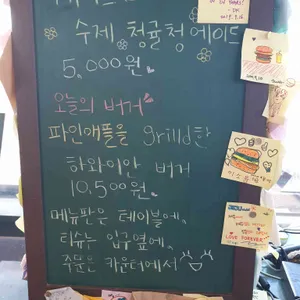 수제 청귤청 에이드
5,000원
오늘의 버거
파인애플을 grilld한
하와이안 버거
10,500원
메뉴판은 테이블에,
티슈는 입구옆에,
주문은 카운터에서
LOVE FOREVER